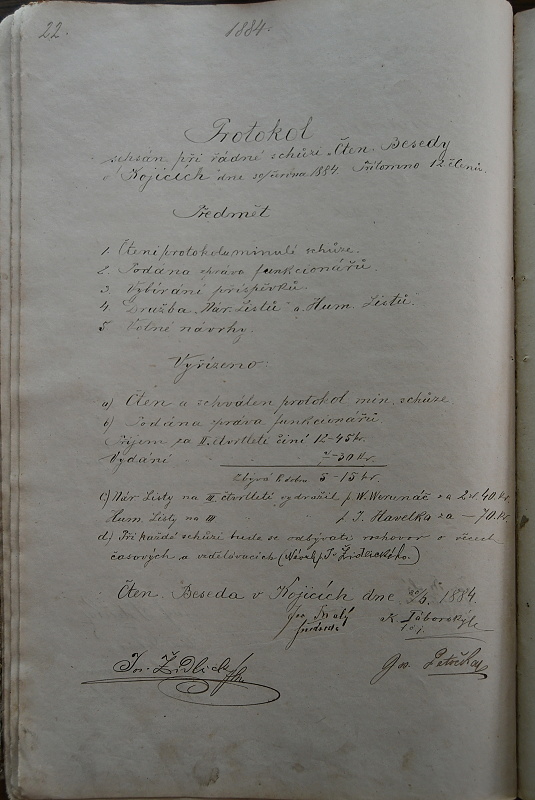 22.
1884.
Protokol
sepsán při řádné schůzi "Čten. Besedy
v Kojicích dne 29/června 1884. Přítomno 12 členů.
Předmět
1. Čtení protokolu minulé schůze.
2. Podána zpráva funkcionářů.
3. Vybírání příspěvků.
4. Dražba "Nár. Listů" a "Hum. Listů".
5 Volné návrhy.
Vyřízeno:
a) Čten a schválen protokol min. schůze
b) Podána zpráva funkcionářů.
Příjem za II. čtvrtletí činí 12-45 kr.
Vydání 7-30 kr.
Zbývá k dobru 5-15 kr.
c) Nár Listy na III. čtvrtletí vydražil p W. Werunáč za 2 zl. 40 kr.
Hum. Listy na III p J. Havelka za -70 kr.
d) Při každé schůzi bude se odbývati rozhovor o věcech
časových a vzdělávacích (Návrh p. Židlického.)
Čten. Beseda v Kojicích dne 1884.
Jos. Malý K. Táborský
Jos. Židlický
Jos. Petružálek